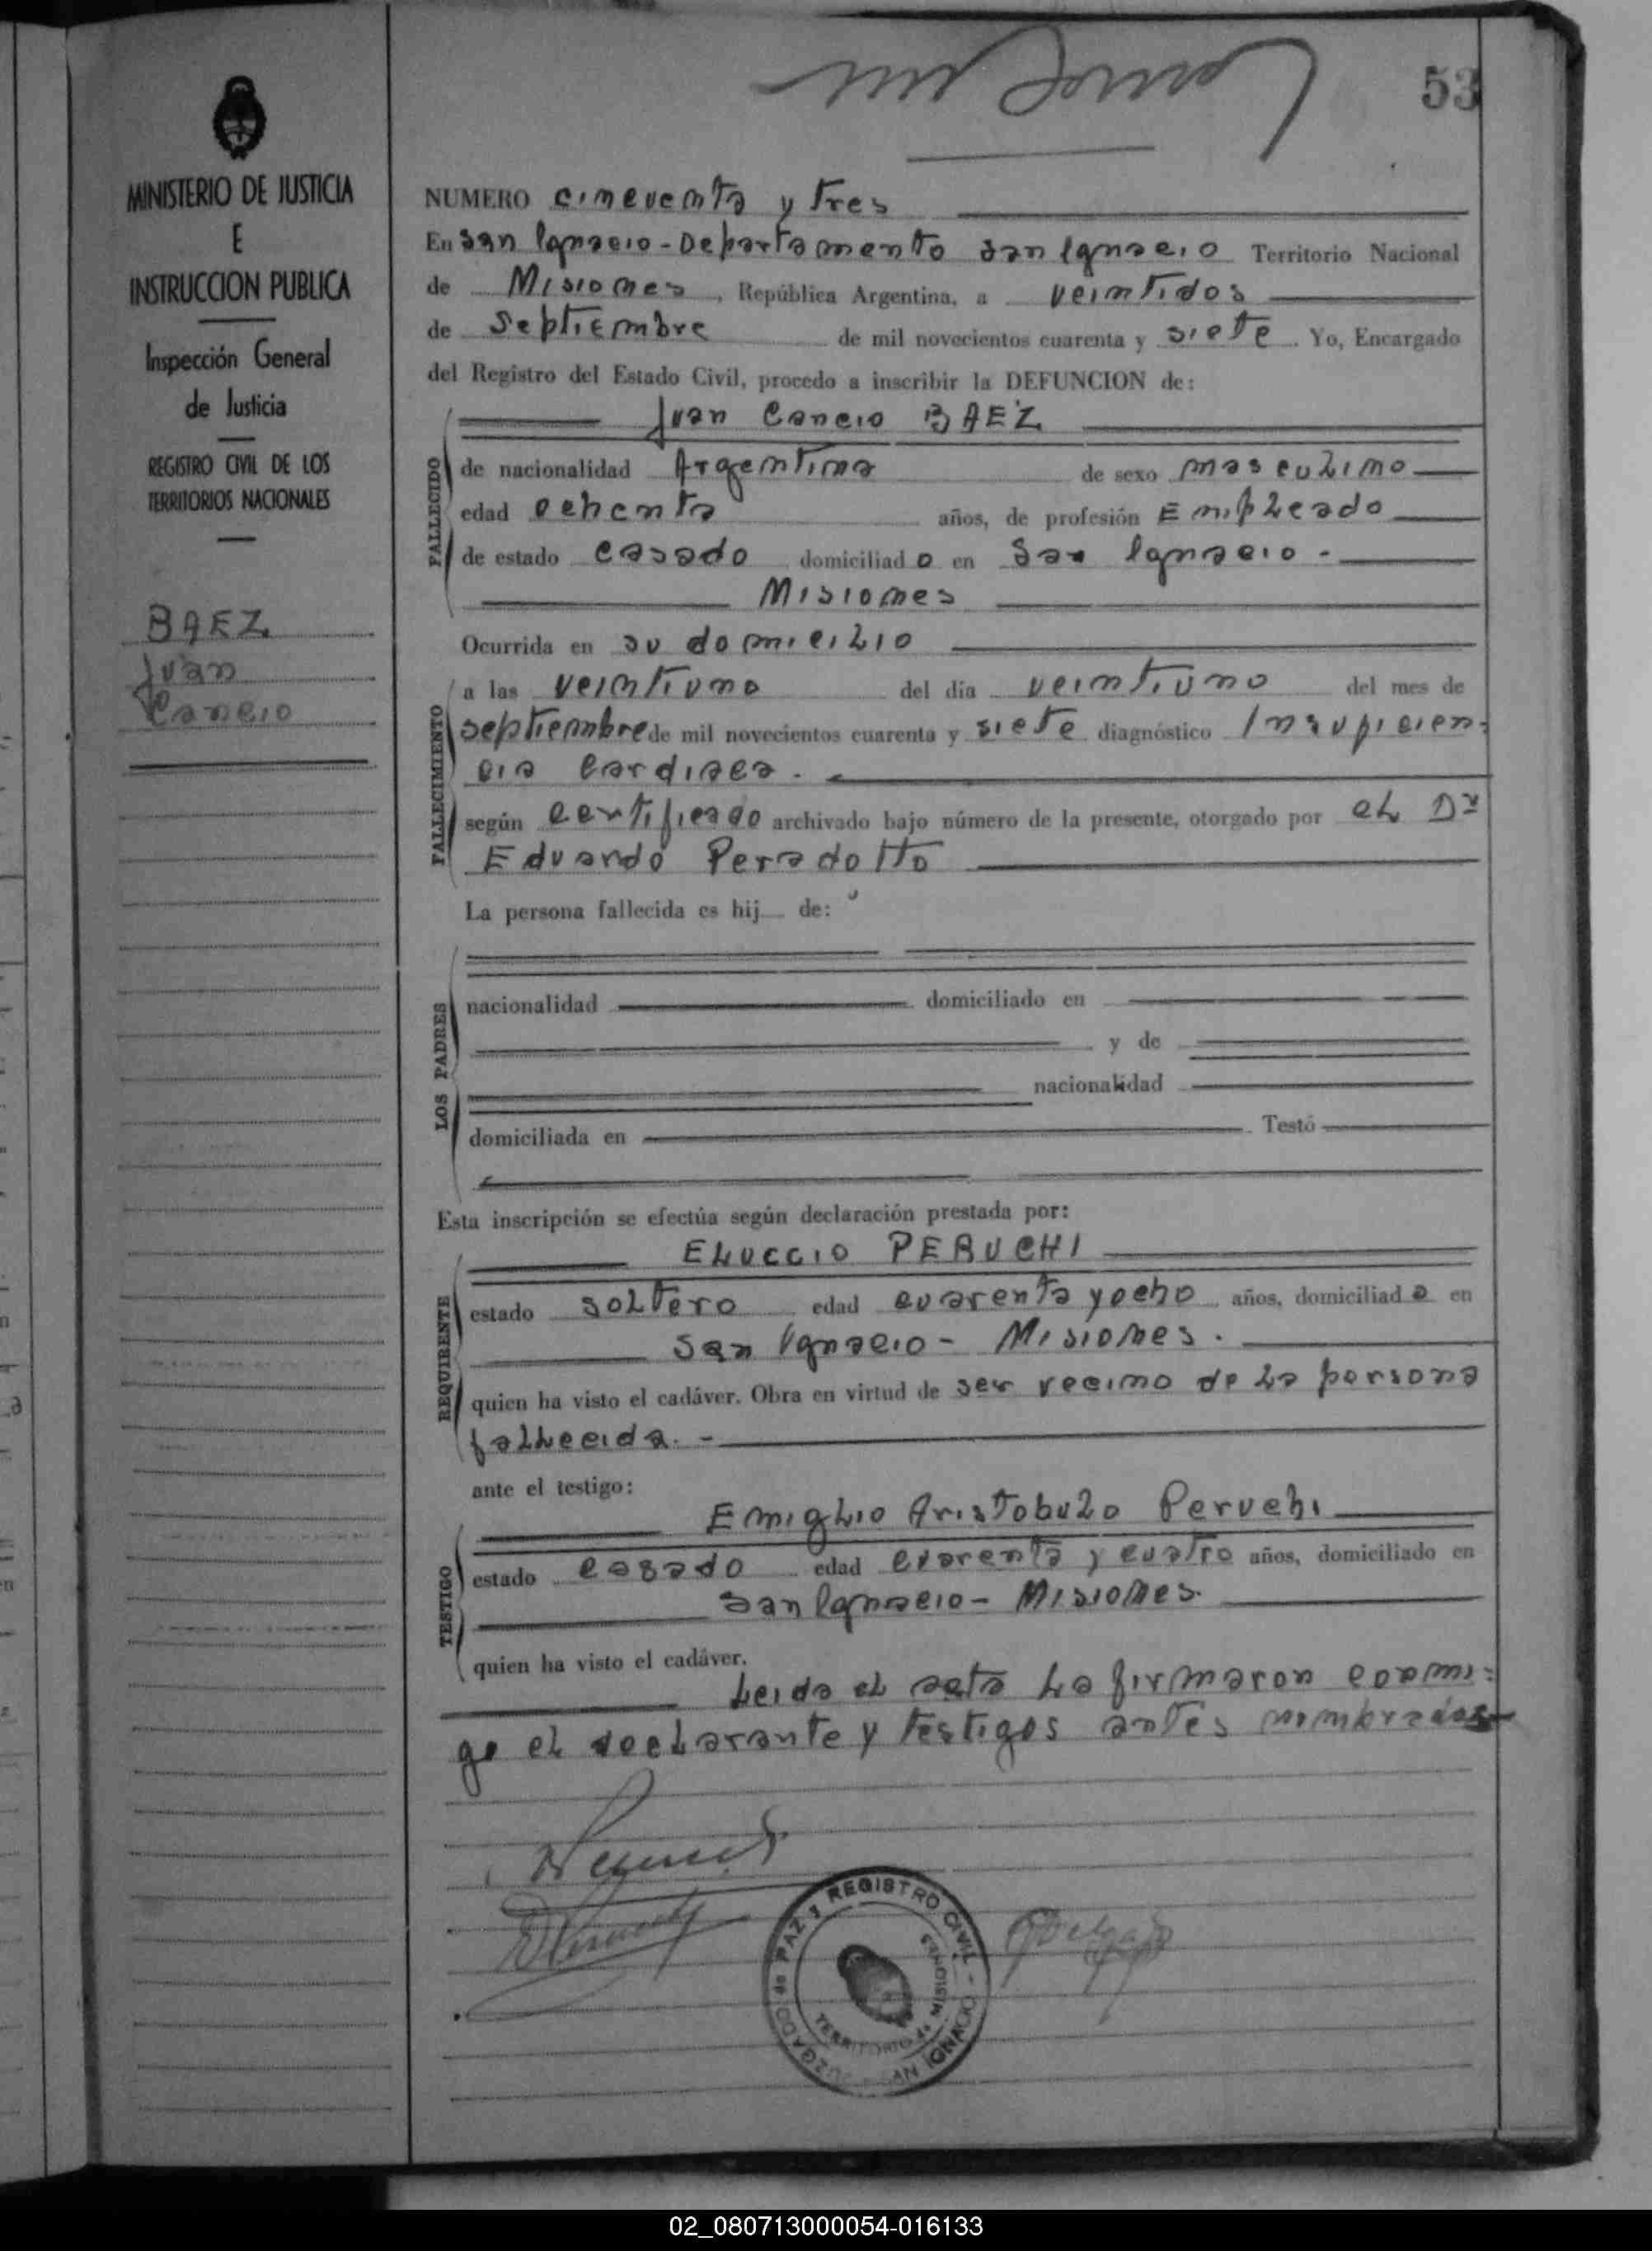 53
MINISTERIO DE JUSTICIA
E
INSTRUCCION PUBLICA
Inspección General
de Justicia
REGISTRO CIVIL DE LOS
TERRITORIOS NACIONALES
BAEZ
Juan
Cancio
NUMERO cincuenta y tres
En San Ignacio - Departamento San Ignacio Territorio Nacional
de Misiones, República Argentina, a veintidos
de Septiembre de mil novecientos cuarenta y siete. Yo, Encargado
del Registro del Estado Civil, procedo a inscribir la DEFUNCION de:
Juan Cancio BAEZ
FALLECIDO
de nacionalidad Argentina de sexo masculino
edad ochenta años, de profesión Empleado
de estado casado domiciliado en San Ignacio -
Misiones
Ocurrida en su domicilio
FALLECIMIENTO
a las veintiuna del día veintiuno del mes de
septiembre de mil novecientos cuarenta y siete diagnóstico Insuficien-
cia cardiaca.
según certificado archivado bajo número de la presente, otorgado por el Dr
Eduardo Peradotto
La persona fallecida es hij de:
LOS PADRES
nacionalidad domiciliado en
y de
nacionalidad
domiciliada en Testó
Esta inscripción se efectúa según declaración prestada por:
ELUCCIO PERUCHI
REQUIRENTE
estado soltero edad cuarenta y ocho años, domiciliado en
San Ignacio - Misiones.
quien ha visto el cadáver. Obra en virtud de ser vecino de la persona
fallecida. -
ante el testigo:
Emiglio Aristobulo Peruchi
TESTIGO
estado casado edad cuarenta y cuatro años, domiciliado en
San Ignacio - Misiones.
quien ha visto el cadáver.
Leida el acta la firmaron conmi-
go el declarante y testigos antes nombrados
JUZGADO de PAZ y REGISTRO CIVIL - SAN IGNACIO
TERRITORIO de MISIONES
02_080713000054-016133